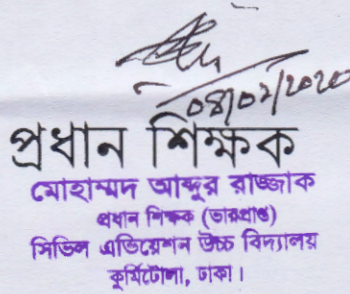 ০৪/০২/২০২০
প্রধান শিক্ষক
মোহাম্মদ আব্দুর রাজ্জাক
প্রধান শিক্ষক (ভারপ্রাপ্ত)
সিভিল এভিয়েশন উচ্চ বিদ্যালয়
কুর্মিটোলা, ঢাকা।